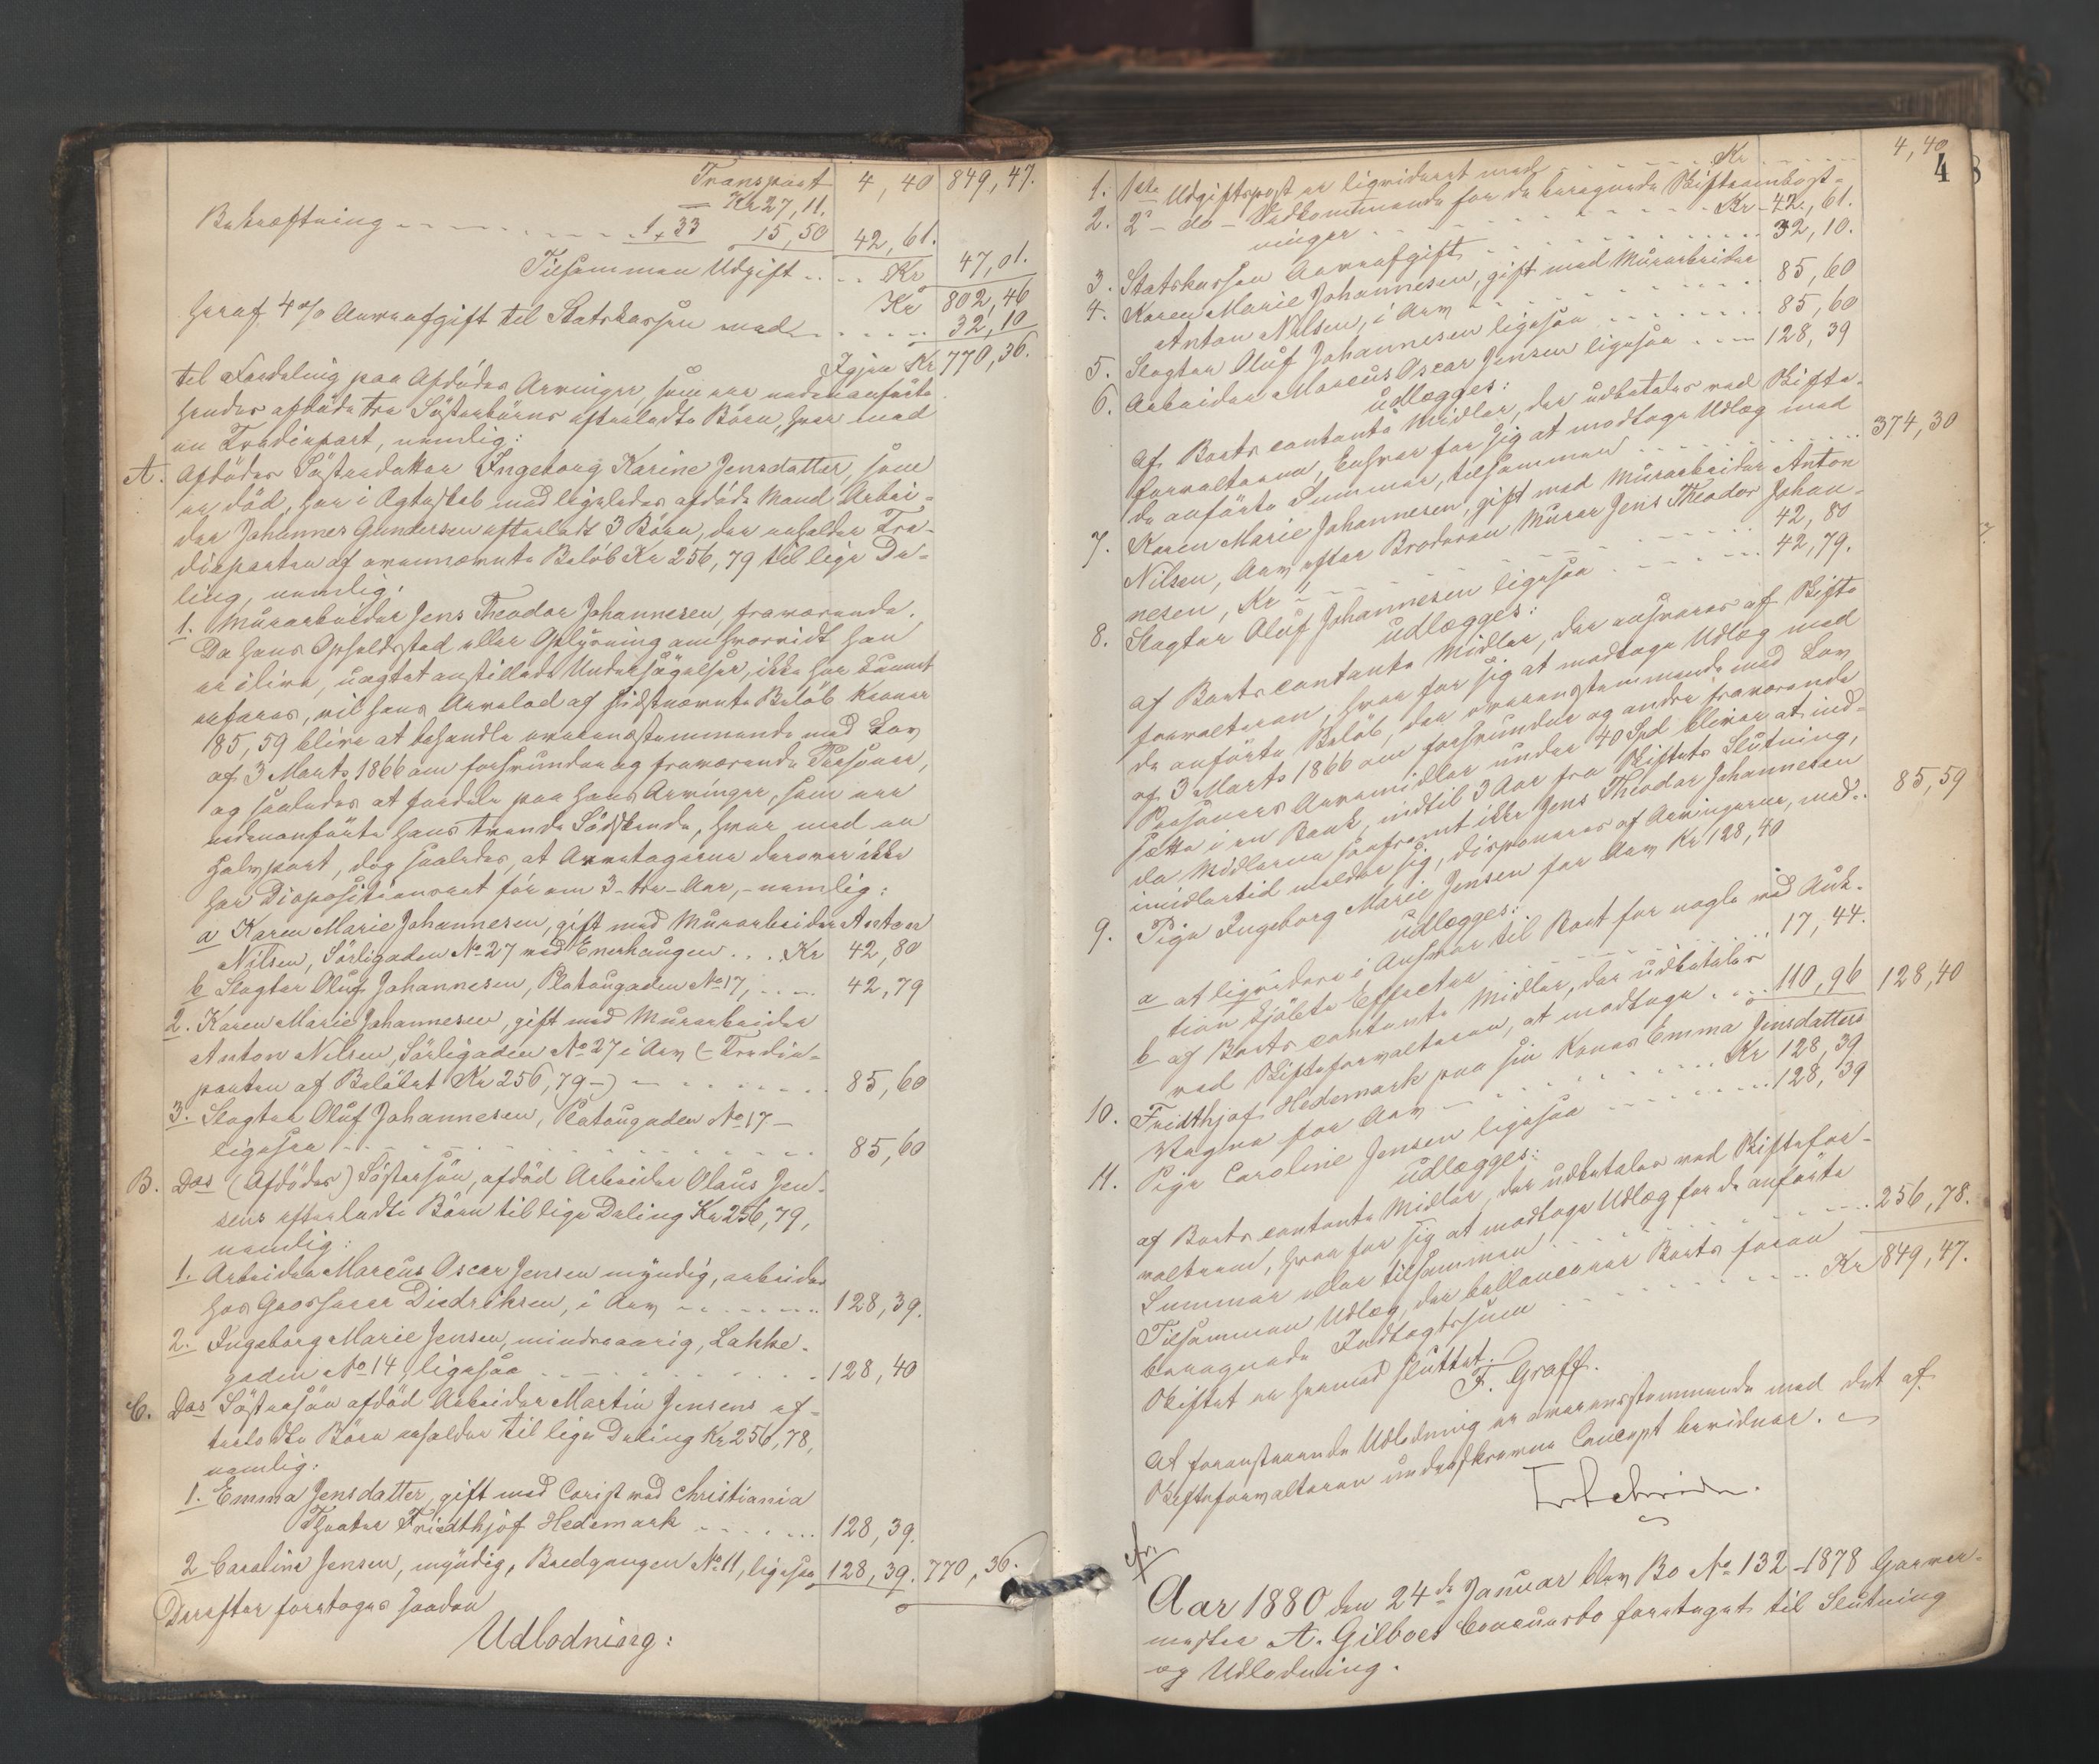 Transport 4,40 849,47.
= Kr 27,11.
Bekræftning 1,33 15,50 42,61.
Tilsammen Udgift Kr 47,01.
Kr 802,46
heraf 4 % Arveafgift til Statskassen med 32,10
Igjen Kr 770,36.
til Fordeling paa Afdödes Arvinger, som ere nedenanförte
hendes afdöde tre Søsterbörns efterladte Börn, hver med
en Trediepart, nemlig:
A. Afdödes Söstersdatter Ingeborg Karine Jensdatter, som
er död, har i Ægteskab med ligeledes afdöde Mand Arbei-
der Johannes Gundersen efterladt 3 Börn, der erholder Tre-
dieparten af ovennævnte Belöb Kr 256,79 til lige De-
ling, nemlig:
1. Murarbeider Jens Theodor Johannesen, fraværende.
Da hans Opholdssted eller Oplysning om hvorvidt han
er ilive, uagtet anstillede Undersögelser, ikke har kunnet
erfares, vil hans Arvelod af sidstnævnte Belöb Kroner
85,59 blive at behandle overensstemmende med Lov
af 3 Marts 1866 om forsvundne og fraværende Personer,
og saaledes at fordele paa hans Arvinger, som ere
nedenanförte hans tvende Södskende, hver med en
Halvpart, dog saaledes, at Arvetagerne derover ikke
har Dispositionsret för om 3 - tre - Aar, - nemlig:
a Karen Marie Johannesen, gift med Murarbeider Anton
Nilsen, Sörligaden No 27 ved Enerhaugen Kr 42,80
b Slagter Oluf Johannesen, Platougaden No 17, 42,79
2. Karen Marie Johannesen, gift med Murarbeider
Anton Nilsen, Sörligaden No 27 i Arv (- Tredie-
parten af Belöbet Kr 256,79 -) 85,60
3. Slagter Oluf Johannesen, Platougaden No 17 -
ligesaa 85,60
B. Des (Afdödes) Söstersön, afdöd Arbeider Olaus Jen-
sens efterladte Börn til lige Deling Kr 256,79,
nemlig:
1. Arbeider Marcus Oscar Jensen myndig, arbeider
hos Grosserer Diedriksen, i Arv 128,39.
2. Ingeborg Marie Jensen, mindreaarig, Lakke-
gaden No 14, ligesaa 128,40
C. Des Söstersön afdöd Arbeider Martin Jensens ef-
terladte Börn erholder til lige Deling Kr 256,78,
nemlig:
1. Emma Jensdatter, gift med Corist ved Christiania
Theater Friedthjof Hedemark 128,39.
2 Caroline Jensen, myndig, Bredgangen No 11, ligesaa 128,39. 770,36.
Derefter foretoges saadan
Udlodning:
4
Kr 4,40
1. 1ste Udgiftspost er ligvideret med
2. 2 - do - Vedkommende for de beregnede Skifteomkost-
ninger Kr 42,61.
3. Statskassen Arveafgift 32,10.
4. Karen Marie Johannesen, gift med Murarbeider
Anton Nilsen, i Arv 85,60
5. Slagter Oluf Johannesen ligesaa 85,60
6. Arbeider Marcus Oscar Jensen ligesaa 128,39
udlægges:
Af Boets contante Midler, der udbetales ved Skifte-
forvalteren, Enhver for sig at modtage Udlæg med
de anförte Summer, tilsammen 374,30
7. Karen Marie Johannesen, gift med Murarbeider Anton
Nilsen, Arv efter Broderen Murer Jens Theodor Johan-
nesen, Kr 42,80
8. Slagter Oluf Johannesen ligesaa 42,79.
udlægges:
af Boets contante Midler, der ansvares af Skifte
forvalteren, hver for sig at modtage Udlæg med
de anförte Belöb, der overensstemmende med Lov
af 3 Marts 1866 om forsvundne og andre fraværende
Personers Arvemidler under 40 Spd bliver at ind-
sætte i en Bank, indtil 3 Aar fra Skiftets Slutning,
da Midlerne saafremt ikke Jens Theodor Johannesen
imidlertid melder sig, disponeres af Arvingerne, med 85,59
9. Pige Ingeborg Marie Jensen for Arv Kr 128,40
udlægges:
a at ligvidere i Ansvar til Boet for nogle ved Auk-
tion kjöbte Effecter 17,44.
b af Boets contante Midler, der udbetales
ved Skifteforvalteren, at modtage 110,96 128,40
10. Fridthjof Hedemark paa sin Kones Emma Jensdatters
Vegne for Arv Kr 128,39
11. Pige Caroline Jensen ligesaa 128,39
udlægges:
af Boets contante Midler, der udbetales ved Skiftefor-
valteren, hver for sig at modtage Udlæg for de anförte
Summer eller tilsammen 256,78.
Tilsammen Udlæg, der ballancerer Boets foran
beregnede Indtægtssum Kr 849,47.
Skiftet er hermed sluttet.
F. Graff.
At foranstaaende Udlodning er overensstemmende med det af
Skifteforvalteren underskrevne Concept bevidner.
Aar 1880 den 24de Januar blev Bo No 132 - 1878 Garver-
mester A. Gilboes Concursbo foretaget til Slutning
og Udlodning.